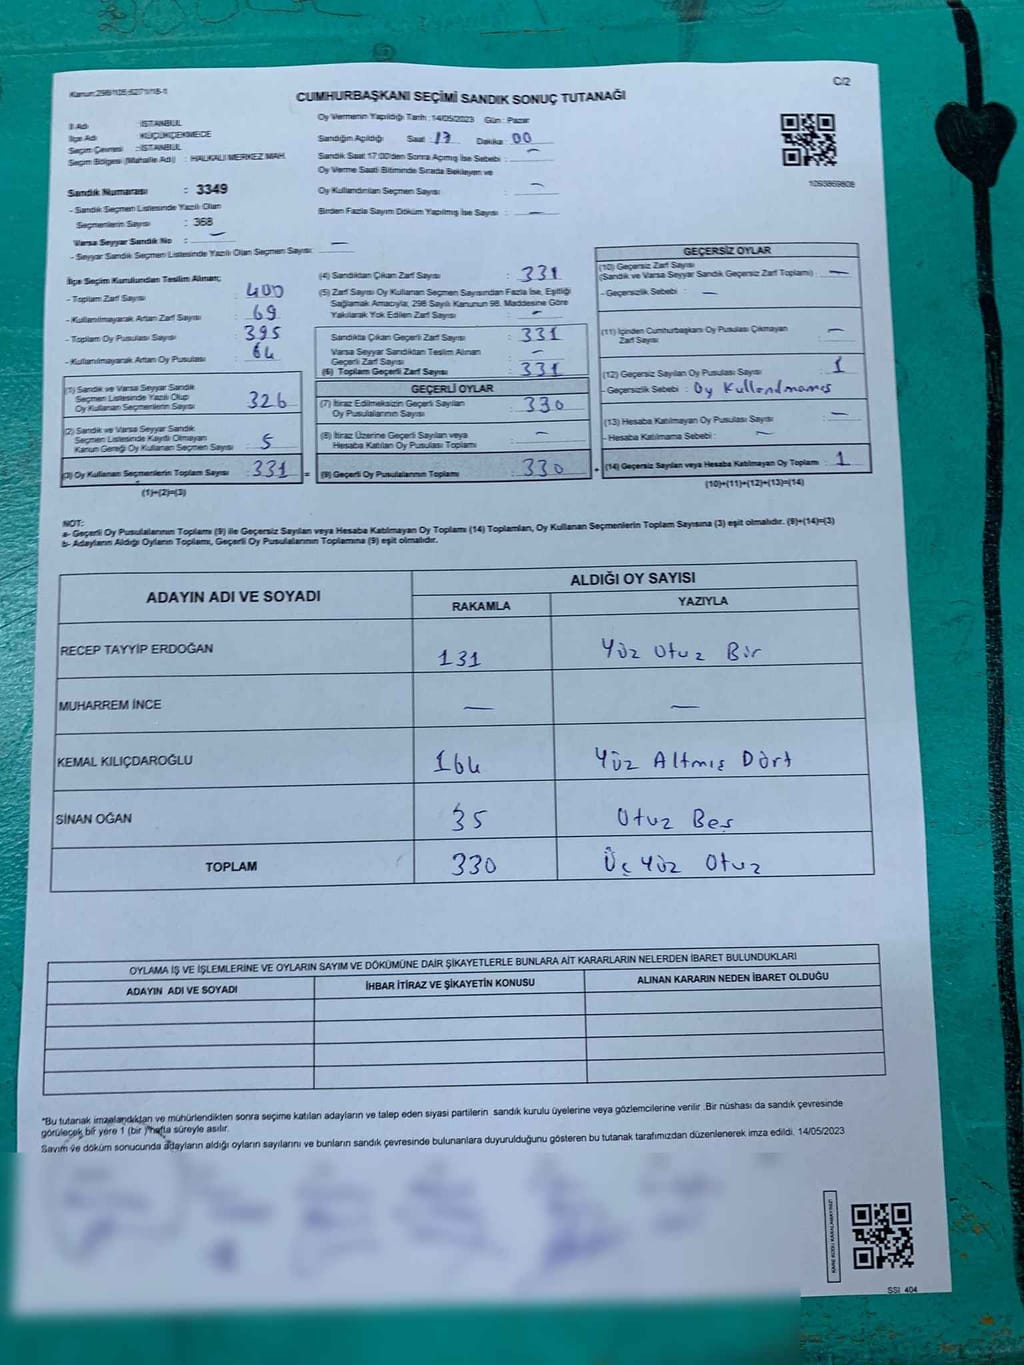 Kanun:298/105;6271/18-1
C/2
CUMHURBAŞKANI SEÇİMİ SANDIK SONUÇ TUTANAĞI
İl Adı : İSTANBUL
İlçe Adı : KÜÇÜKÇEKMECE
Seçim Çevresi : İSTANBUL
Seçim Bölgesi (Mahalle Adı) : HALKALI MERKEZ MAH.
Oy Vermenin Yapıldığı Tarih :14/05/2023 Gün : Pazar
Sandığın Açıldığı Saat : 17 Dakika : 00
Sandık Saat 17:00'den Sonra Açılmış İse Sebebi : —
Oy Verme Saati Bitiminde Sırada Bekleyen ve
Oy Kullandırılan Seçmen Sayısı : —
Birden Fazla Sayım Döküm Yapılmış İse Sayısı : —
Sandık Numarası : 3349
- Sandık Seçmen Listesinde Yazılı Olan
Seçmenlerin Sayısı : 368
Varsa Seyyar Sandık No : —
- Seyyar Sandık Seçmen Listesinde Yazılı Olan Seçmen Sayısı: —
İlçe Seçim Kurulundan Teslim Alınan;
- Toplam Zarf Sayısı : 400
- Kullanılmayarak Artan Zarf Sayısı : 69
- Toplam Oy Pusulası Sayısı : 395
- Kullanılmayarak Artan Oy Pusulası : 64
(1) Sandık ve Varsa Seyyar Sandık
Seçmen Listesinde Yazılı Olup
Oy Kullanan Seçmenlerin Sayısı : 326
(2) Sandık ve Varsa Seyyar Sandık
Seçmen Listesinde Kayıtlı Olmayan
Kanun Gereği Oy Kullanan Seçmen Sayısı : 5
(3) Oy Kullanan Seçmenlerin Toplam Sayısı : 331 =
(1)+(2)=(3)
(4) Sandıktan Çıkan Zarf Sayısı : 331
(5) Zarf Sayısı Oy Kullanan Seçmen Sayısından Fazla İse, Eşitliği
Sağlamak Amacıyla; 298 Sayılı Kanunun 98. Maddesine Göre
Yakılarak Yok Edilen Zarf Sayısı : —
Sandıkta Çıkan Geçerli Zarf Sayısı : 331
Varsa Seyyar Sandıktan Teslim Alınan
Geçerli Zarf Sayısı : —
(6) Toplam Geçerli Zarf Sayısı : 331
GEÇERLİ OYLAR
(7) İtiraz Edilmeksizin Geçerli Sayılan
Oy Pusulalarının Sayısı : 330
(8) İtiraz Üzerine Geçerli Sayılan veya
Hesaba Katılan Oy Pusulası Toplamı : —
(9) Geçerli Oy Pusulalarının Toplamı : 330 +
GEÇERSİZ OYLAR
(10) Geçersiz Zarf Sayısı
(Sandık ve Varsa Seyyar Sandık Geçersiz Zarf Toplamı) : —
- Geçersizlik Sebebi : —
(11) İçinden Cumhurbaşkanı Oy Pusulası Çıkmayan
Zarf Sayısı : —
(12) Geçersiz Sayılan Oy Pusulası Sayısı : 1
- Geçersizlik Sebebi : Oy Kullanılmamış
(13) Hesaba Katılmayan Oy Pusulası Sayısı : —
- Hesaba Katılmama Sebebi : —
(14) Geçersiz Sayılan veya Hesaba Katılmayan Oy Toplamı : 1
(10)+(11)+(12)+(13)=(14)
NOT:
a- Geçerli Oy Pusulalarının Toplamı (9) ile Geçersiz Sayılan veya Hesaba Katılmayan Oy Toplamı (14) Toplamları, Oy Kullanan Seçmenlerin Toplam Sayısına (3) eşit olmalıdır. (9)+(14)=(3)
b- Adayların Aldığı Oyların Toplamı, Geçerli Oy Pusulalarının Toplamına (9) eşit olmalıdır.
ADAYIN ADI VE SOYADI
ALDIĞI OY SAYISI
RAKAMLA YAZIYLA
RECEP TAYYİP ERDOĞAN 131 Yüz Otuz Bir
MUHARREM İNCE — —
KEMAL KILIÇDAROĞLU 164 Yüz Altmış Dört
SİNAN OĞAN 35 Otuz Beş
TOPLAM 330 Üç Yüz Otuz
OYLAMA İŞ VE İŞLEMLERİNE VE OYLARIN SAYIM VE DÖKÜMÜNE DAİR ŞİKAYETLERLE BUNLARA AİT KARARLARIN NELERDEN İBARET BULUNDUKLARI
ADAYIN ADI VE SOYADI İHBAR İTİRAZ VE ŞİKAYETİN KONUSU ALINAN KARARIN NEDEN İBARET OLDUĞU
*Bu tutanak imzalandıktan ve mühürlendikten sonra seçime katılan adayların ve talep eden siyasi partilerin sandık kurulu üyelerine veya gözlemcilerine verilir .Bir nüshası da sandık çevresinde
görülecek bir yere 1 (bir )hafta süreyle asılır.
Sayım ve döküm sonucunda adayların aldığı oyların sayılarını ve bunların sandık çevresinde bulunanlara duyurulduğunu gösteren bu tutanak tarafımızdan düzenlenerek imza edildi. 14/05/2023
KARE KODU KARALAMAYINIZ!
SSI_404